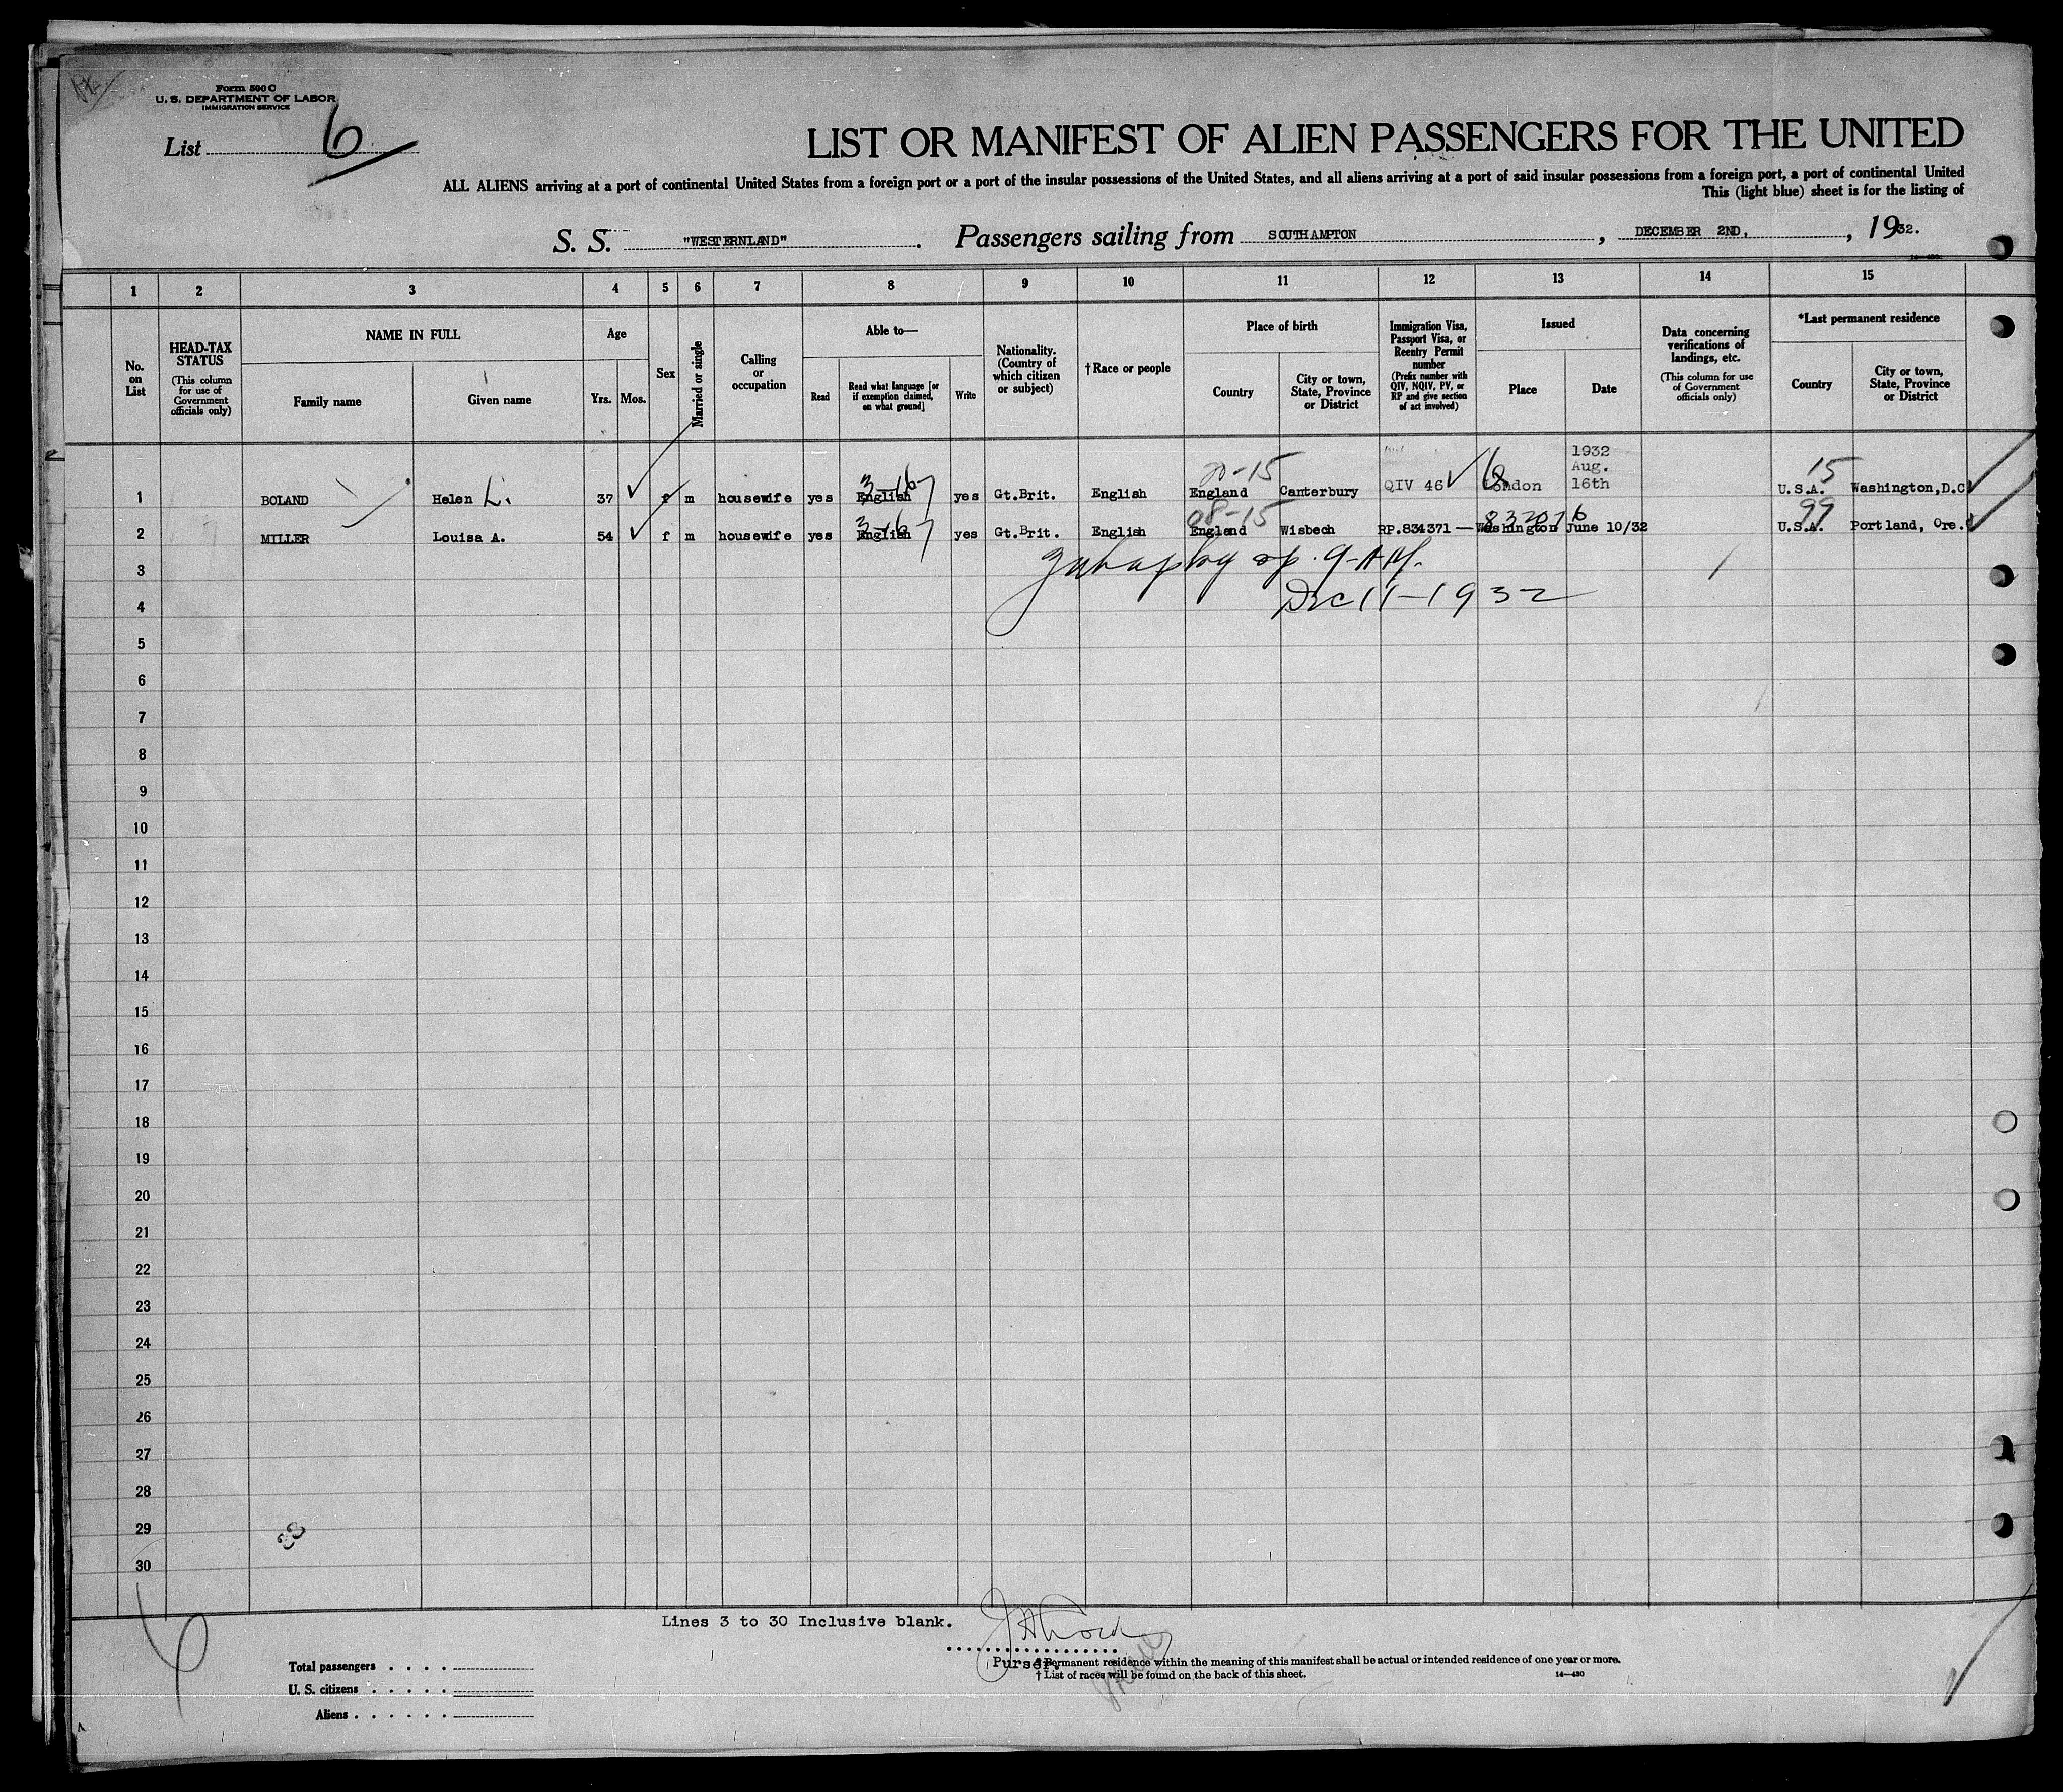 Form 500 C
U. S. DEPARTMENT OF LABOR
IMMIGRATION SERVICE
List 6
LIST OR MANIFEST OF ALIEN PASSENGERS FOR THE UNITED
ALL ALIENS arriving at a port of continental United States from a foreign port or a port of the insular possessions of the United States, and all aliens arriving at a port of said insular possessions from a foreign port, a port of continental United
This (light blue) sheet is for the listing of
S. S. "WESTERNLAND". Passengers sailing from SOUTHAMPTON, DECEMBER 2ND, , 1932.
14—430
1 2 3 4 5 6 7 8 9 10 11 12 13 14 15
No. on List
HEAD-TAX STATUS
(This column for use of Government officials only)
NAME IN FULL
Family name
Given name
Age
Yrs. Mos.
Sex
Married or single
Calling or occupation
Able to—
Read
Read what language [or if exemption claimed, on what ground]
Write
Nationality. (Country of which citizen or subject)
†Race or people
Place of birth
Country
City or town, State, Province or District
Immigration Visa, Passport Visa, or Reentry Permit number
(Prefix number with QIV, NQIV, PV, or RP and give section of act involved)
Issued
Place
Date
Data concerning verifications of landings, etc.
(This column for use of Government officials only)
*Last permanent residence
Country
City or town, State, Province or District
1932
Aug.
1 BOLAND Helen L. 37 f m housewife yes English yes Gt.Brit. English England Canterbury QIV 46 London 16th U.S.A. Washington,D.C
3-16 15
2 MILLER Louisa A. 54 f m housewife yes English yes Gt.Brit. English England Wisbech RP.834371 — Washington June 10/32 U.S.A. Portland, Ore.
3-16 08-15 99
3
Dec 11-1932
4
5
6
7
8
9
10
11
12
13
14
15
16
17
18
19
20
21
22
23
24
25
26
27
28
29
30
Lines 3 to 30 Inclusive blank.
Purser.
Total passengers
U. S. citizens
Aliens
* Permanent residence within the meaning of this manifest shall be actual or intended residence of one year or more.
† List of races will be found on the back of this sheet.
14—430